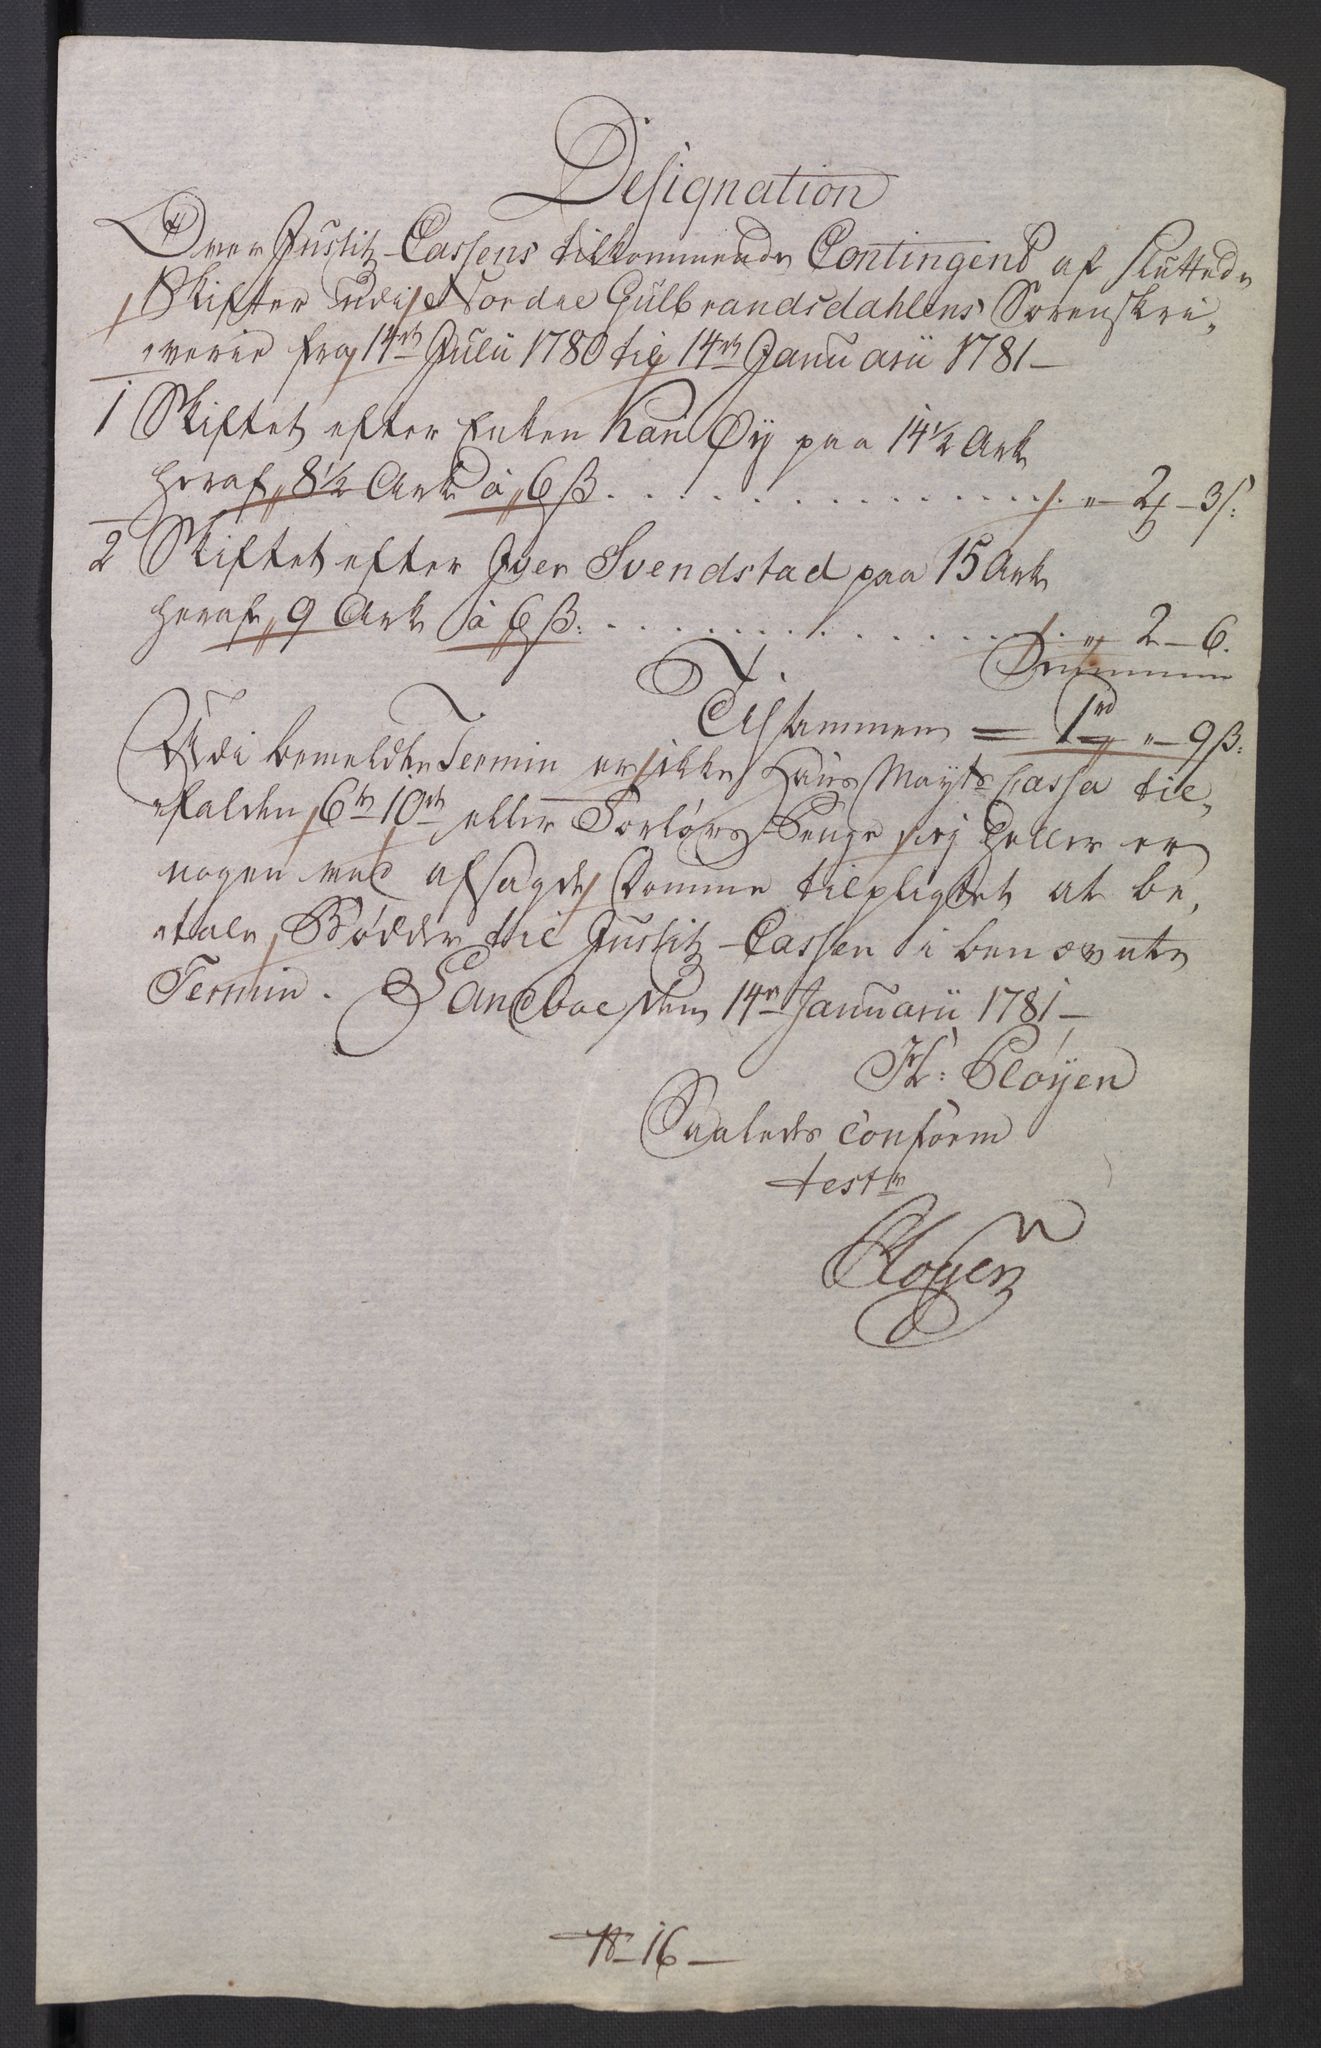 Designation
Over Justitz-Cassens tilkommende Contingent af sluttede
Skifter udi Nordre Gulbrandsdahlens Sorenskri-
-verie fra 14de Julii 1780 til 14de Januarii 1781 —
1 Skiftet efter Enken Kari Øy paa 14½ Ark
heraf 8½ Ark à 6 ß. . . . . . . . . " — 2 — 3 ß:
2 Skiftet efter Iver Svendstad paa 15 Ark
heraf 9 Ark à 6 ß: . . . . . . . . " 2 — 6.
Tilsammen = 1 rd " — 9 ß:
Udi bemeldte Termin er ikke Hans Mayts Cassa til-
-falden 6te 10de eller Forlovs Penge, ey heller er
nogen ved afsagde Domme tilpligtet at be-
-tale Bøder til Justitz-Cassen i benævnte
Termin. Sandboe den 14de Januarii 1781 —
Pløyen
Saaledes conform
test
Pløyen
N 16 —